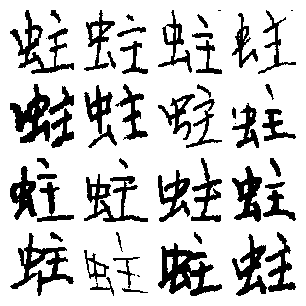 蛀蛀蛀蛀
蛀蛀蛀蛀
蛀蛀蛀蛀
蛀蛀蛀蛀